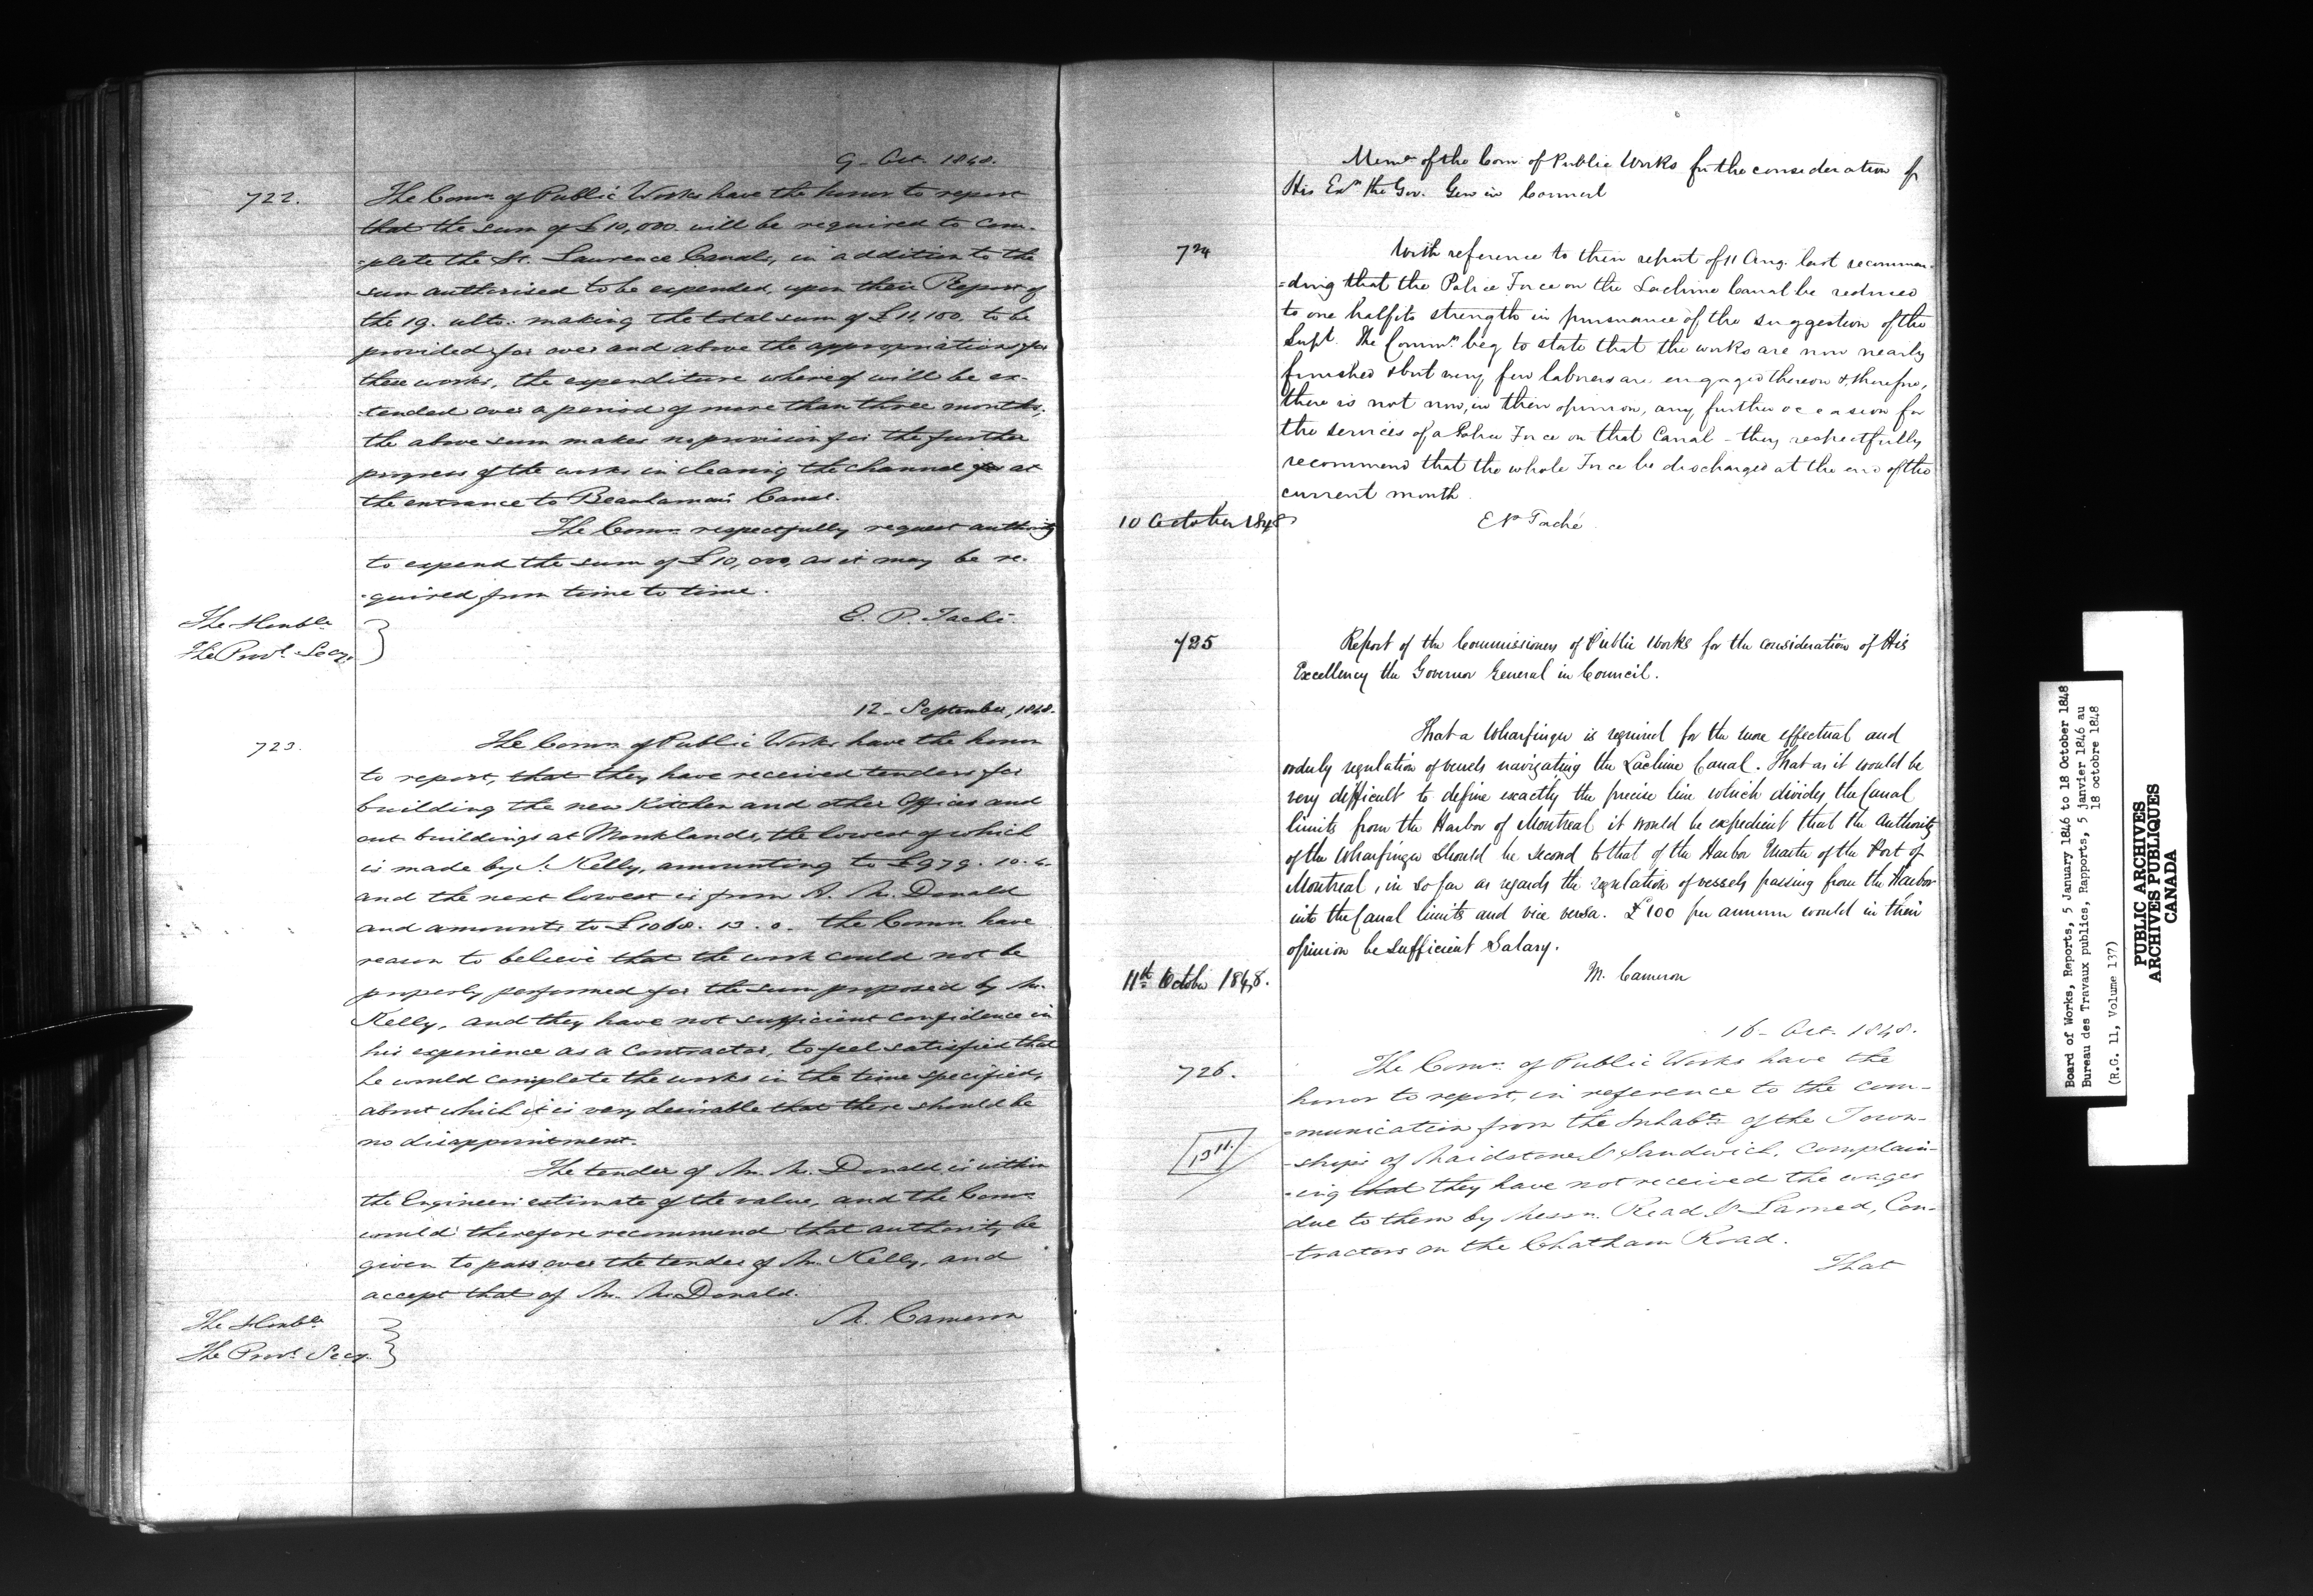 9 - Oct. 1848.
722.
The Comrs. of Public Works have the honor to report
that the sum of £10,000 will be required to com-
-plete the St. Lawrence Canals, in addition to the
sum authorised to be expended, upon their Report of
the 19. ulto: making the total sum of £11,100, to be
provided for over and above the appropriations for
these works, the expenditure whereof will be ex-
-tended over a period of more than three months,
the above sum makes no provision for the further
progress of the works in clearing the channel at
the entrance to Beauharnois Canal.
The Comrs. respectfully request authority
to expend the sum of £10,000, as it may be re-
-quired from time to time.
E. P. Taché.
The Honble.
The Provl. Secy.
12 - September, 1848.
723.
The Comrs. of Public Works have the honor
to report, that they have received tenders for
building the new Kitchen and other Offices and
out buildings at Monklands, the lowest of which
is made by J. Kelly, amounting to £979. 10. 6.
and the next lowest is from A. McDonald
and amounts to £1068. 13. 0. the Comrs. have
reason to believe that the work could not be
properly performed for the sum proposed by Mr.
Kelly, and they have not sufficient confidence in
his experience as a Contractor, to feel satisfied that
he would complete the works in the time specified,
about which it is very desirable that there should be
no disappointment.
The tender of Mr. McDonald, is within
the Engineers estimate of the value, and the Comrs.
would therefore recommend that authority be
given to pass over the tender of Mr. Kelly, and
accept that of Mr. McDonald.
M. Cameron
The Honble.
The Provl. Secy.
Memo of the Com. of Public Works for the consideration of
His Exy. the Gov. Gen in Council
724
With reference to their report of 11 Aug. last recommen-
-ding that the Police Force on the Lachine Canal be reduced
to one half its strength in pursuance of the suggestion of the
Supt. The Commrs. beg to state that the works are now nearly
finished & but very few laborers are engaged thereon & therefore,
there is not now, in their opinion, any further occasion for
the services of a Police Force on that Canal - they respectfully
recommend that the whole Force be discharged at the end of the
current month.
10 October 1848
E P Taché
725
Report of the Commissioners of Public Works for the consideration of His
Excellency the Governor General in Council.
That a Wharfinger is required for the more effectual and
orderly regulation of vessels navigating the Lachine Canal. That as it would be
very difficult to define exactly the precise line which divides the Canal
limits from the Harbor of Montreal it would be expedient that the Authority
of the Wharfinger should be second to that of the Harbor Master of the Port of
Montreal, in so far as regards the regulation of vessels passing from the Harbor
into the Canal limits and vice versa. £100 per annum would in their
opinion be sufficient Salary.
11th October 1848.
M. Cameron
16 - Oct. 1848.
726.
The Comrs. of Public Works have the
honor to report, in reference to the com-
-munication from the Inhabts. of the Town-
-ships of Maidstone & Sandwich, complain-
-ing that they have not received the wages
due to them by Messrs. Read & Larned, Con-
-tractors on the Chatham Road.
That
Board of Works, Reports, 5 January 1846 to 18 October 1848
Bureau des Travaux publics, Rapports, 5 janvier 1846 au
18 octobre 1848
(R.G. 11, Volume 137)
PUBLIC ARCHIVES
ARCHIVES PUBLIQUES
CANADA